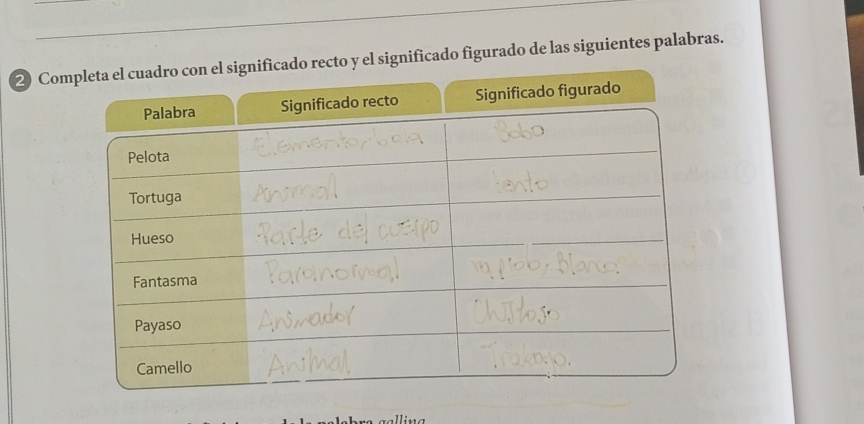 2 Completa el cuadro con el significado recto y el significado figurado de las siguientes palabras.
Palabra Significado recto Significado figurado
Pelota Bobo
Tortuga Animal lento
Hueso Parte del cuerpo
Fantasma Paranormal Blanco.
Payaso Animador Chistoso
Camello Animal
palabra gallina